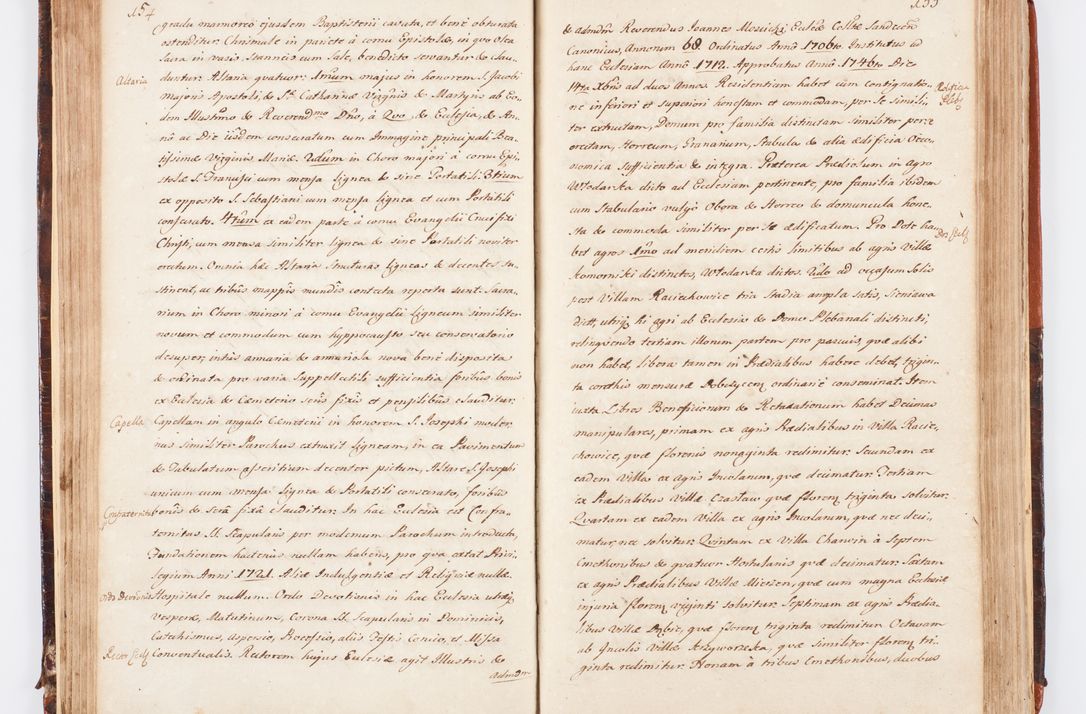 154
gradu marmoreo ejusdem Baptisterii cavata, et bene obturata
ostenditur. Chrismale in pariete à cornu Epistolæ, in quo Olea
Sacra in vasis Stanneis cum Sale, benedicto servantur & clau„
Altaria
duntur. Altaria quatuor: 1mum majus in honorem S. Jacobi
majoris Apostoli, & Stæ Catharinæ Virginis & Martyris ab Eo„
dem Illustrmo & Reverendmo Dño, à Quo, & Ecclesia, & An„
nô ac Die iisdem consecratum cum Immagine principali Bea„
tissimæ Virginis Mariæ. 2dum in Choro majori à cornu Epi„
stolæ S. Francisci cum mensa lignea & sine Portatili. 3tium
ex opposito S. Sebastiani cum mensa lignea et cum Portatili
consecrato. 4tum ex eadem parte à cornu Evangelii Crucifixi
Christi, cum mensa similiter lignea & sine Portatili noviter
erectum. Omnia hæc Altaria structuras ligneas & decentes su„
stinent, ac tribus mappis mundis contecta reperta sunt. Sacra„
rium in Choro minori à cornu Evangelii ligneum similiter
novum et commodum cum hyppocausto seu conservatorio
desuper, intus armaria & armariola nova bene disposita
& ordinata pro varia Suppellectili sufficientia foribus bonis
ex Ecclesia & Cæmeterio seris fixis et pensilibus clauditur.
Capella
Capellam in angulo Cæmeterii in honorem S. Josephi moder„
nus similiter Parochus extruxit ligneam, in ea Pavimentum
& Tabulatum asseritium decenter pictum, Altare S. Josephi
unicum cum mensa lignea & Portatili consecrato, foribus
Confraternitas
bonis & serâ fixâ clauditur. In hac Ecclesia est Confra„
ternitas SS. Scapularis per modernum Parochum introducta,
Fundationem hactenus nullam habens, pro qua extat Privi„
legium Anni 1721. Aliæ Indulgentiæ et Reliquiæ nullæ.
Ordo Devotionis
Hospitale nullum. Ordo Devotionis in hac Ecclesia utrisq
Vesperæ, Matutinum, Corona SS. Scapularis in Dominicis,
Catechismus, Aspersio, Processio, aliis Festis Concio, et Missa
Rector Eccl
Conventualis. Rectorem hujus Ecclesiæ agit Illustris &
Admdm
155
& admdm Reverendus Joannes Ecclæ Collæ Sandecen
Canonicus, Annorum 68. Ordinatus Annô 1706to. Institutus ad
hanc Ecclesiam Annô 1712. Approbatus Annô 1746to Die
14ta Xbris ad duos Annos. Residentiam habet cum contignatio„
Ædificia
Plebis
ne inferiori et superiori honestam et commodam, per se simili„
ter extructam, Domum pro familia distinctam similiter per se
erectam, Horreum, Granarium, Stabula & alia ædificia Oeco„
nomica sufficientia & integra. Præterea Prædiolum in agro
Włodarska dicto ad Ecclesiam pertinente, pro familia ibidem
cum Stabulario vulgò Obora & Horreo & domuncula hone„
sta & commoda similiter per se ædificatum. Pro Dote ha„
Dos Eccl
bet agros 1mo ad meridiem certis limitibus ab agris Villæ
Komorniki distinctos, Włodarska dictos. 2do ad occasum Solis
post Villam Raciechowice tria Stadia ampla satis, Sieniawa
dicti, utriq hi agri ab Ecclesia & Domo Plebanali distincti,
relinquendo tertiam illorum partem pro pascuis, quæ alibi
non habet, libera tamen in Prædialibus habere debet, trigin„
ta corethis mensuræ Dobczycen ordinariè conseminat. Item
iuxta Libros Beneficiorum & Retaxationum habet Decimas
manipulares, primam ex agris Prædialibus in Villa Racie„
chowice, quæ florenis nonaginta redimitur. Secundam ex
eadem Villa ex agris Incolarum, quæ decimatur. Tertiam
ex Prædialibus Villæ Czasław quæ floren triginta solvitur.
Quartam ex eadem Villa ex agris Incolarum, quæ nec deci„
matur, nec solvitur. Quintam ex Villa Charwin à Septem
Cmethonibus & quatuor Hortulanis quæ decimatur. Sextam
ex agris Prædialibus Villæ Mierzen, quæ cum magna Ecclesiæ
injuria floren viginti solvitur. Septimam ex agris Prædia„
libus Villæ quæ floren triginta redimitur. Octavam
ab Incolis Villæ Krzyworzeka, quæ similiter floren tri„
ginta redimitur. Nonam à tribus Cmethonibus, duobus